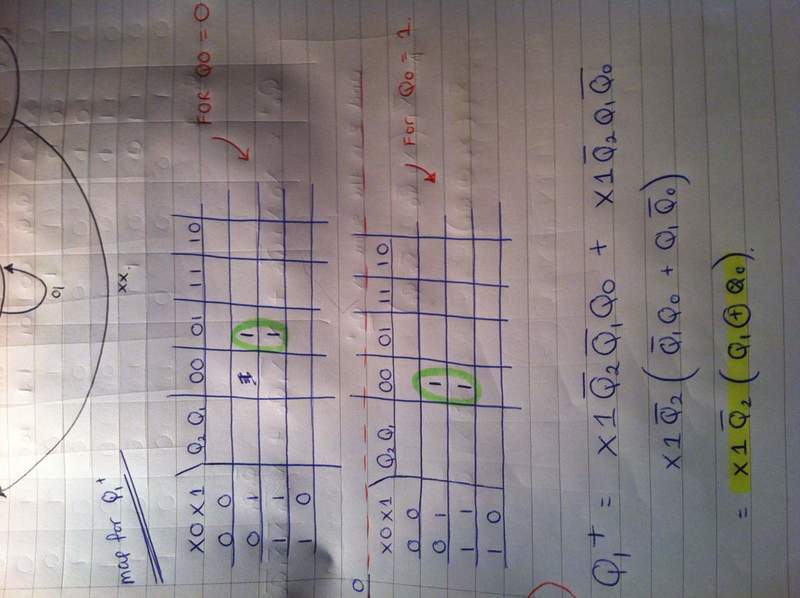 0,
xx.
map for Q₁⁺
FOR Q0 = 0
X0 X1 \ Q₂ Q₁ 00 01 11 10
0 0
0 1 1
1 1 1
1 0
FOR Q0 = 1.
X0 X1 \ Q₂ Q₁ 00 01 11 10
0 0
0 1 1
1 1 1
1 0
Q₁⁺ = X1Q̅₂Q̅₁Q₀ + X1Q̅₂Q₁Q̅₀
X1Q̅₂(Q̅₁Q₀ + Q₁Q̅₀)
= X1Q̅₂(Q₁ ⊕ Q₀).